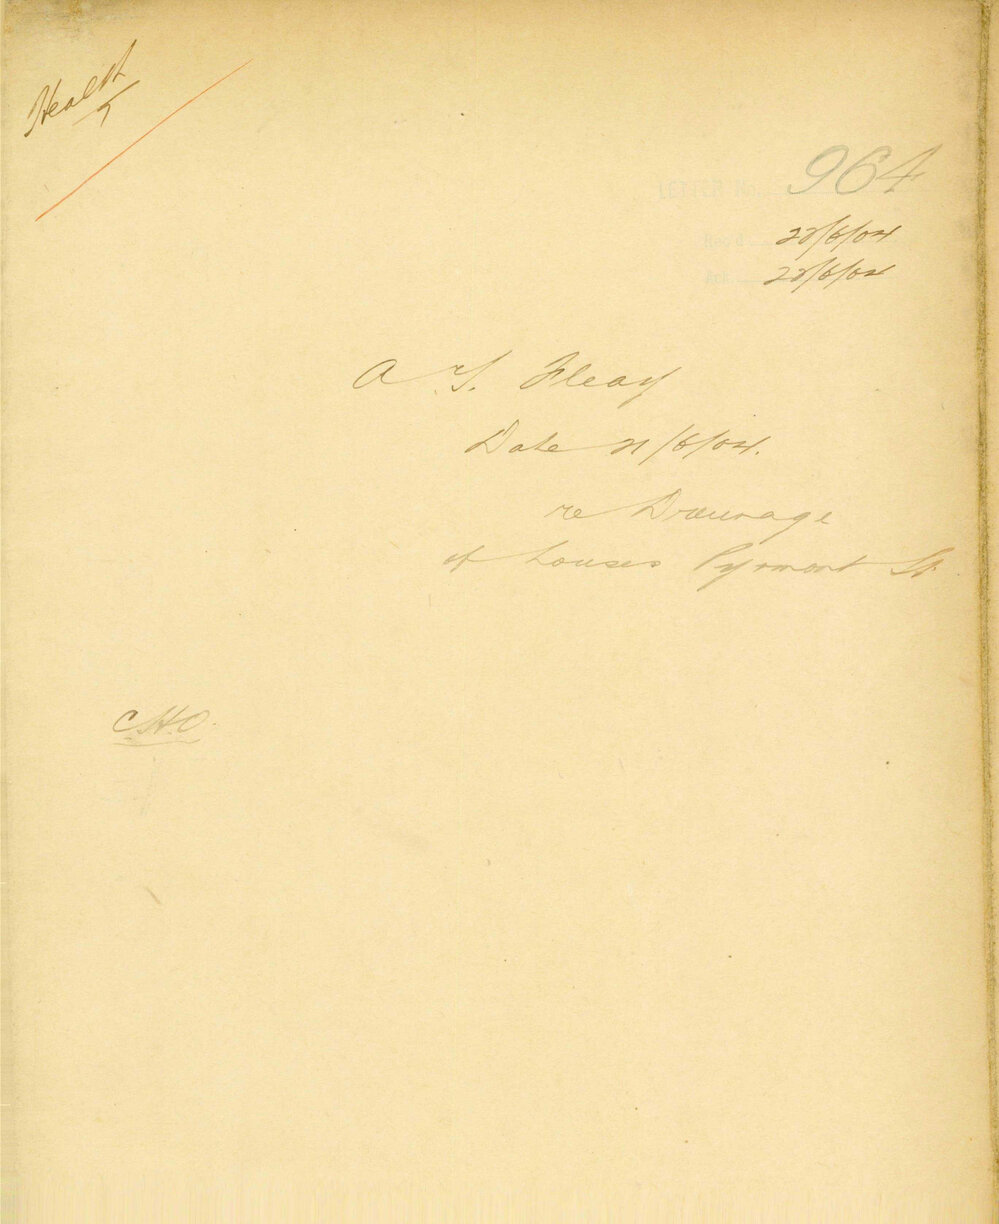 Health
LETTER No. 964
Rec'd 22/6/04
Ack 22/6/04
A S. Fleay
Date 21/6/04.
re Drainage
of houses Pyrmont St.
C.H.O.